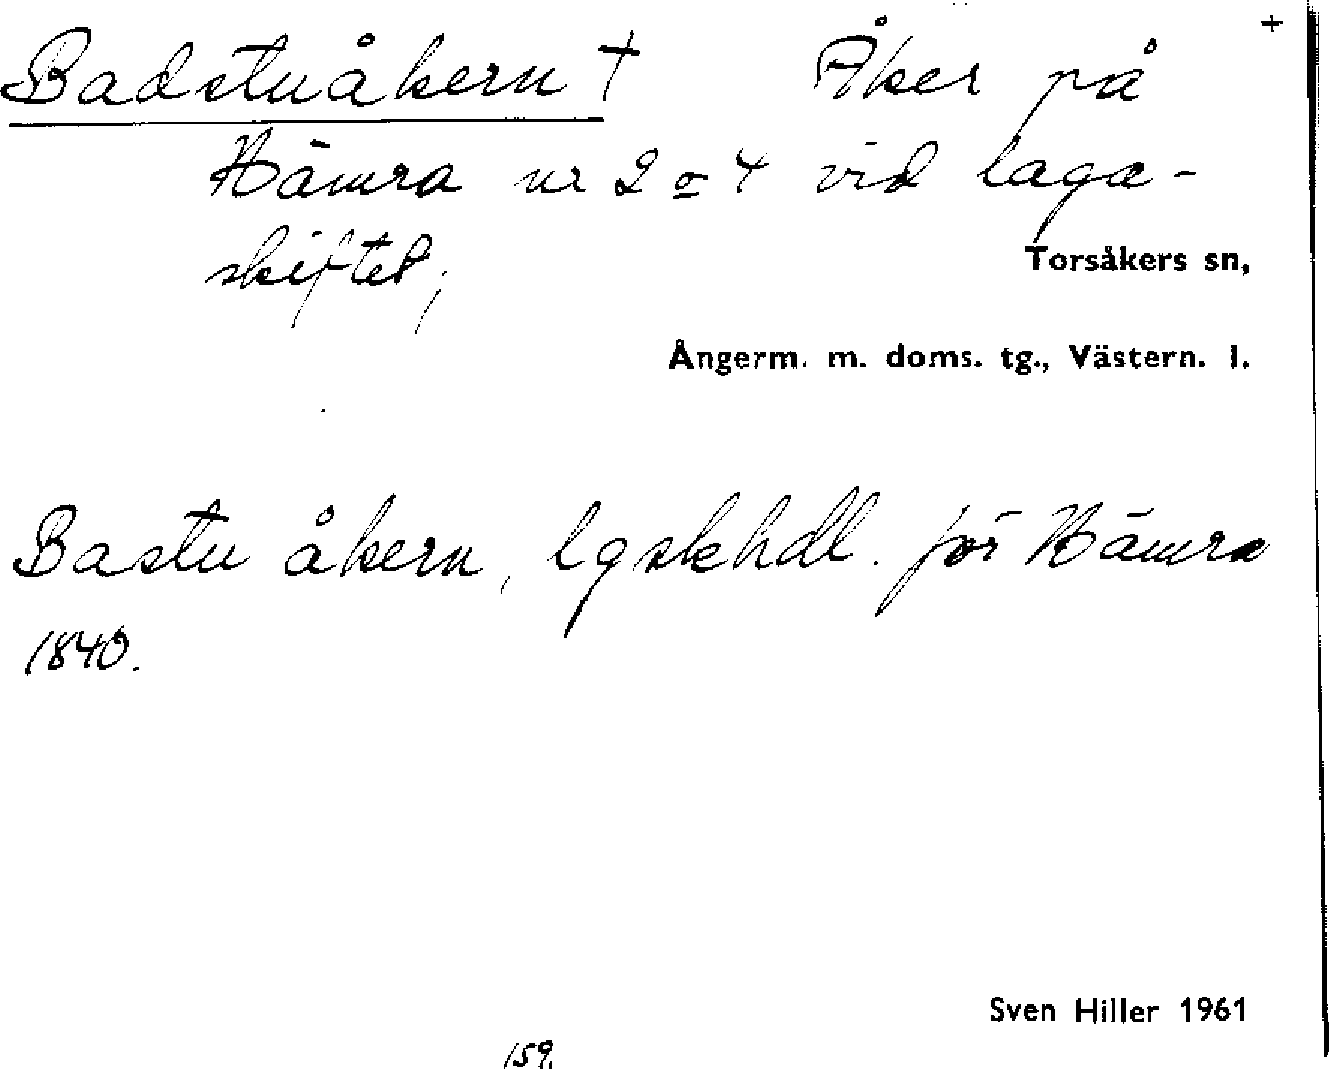 +
Badstuåkern † Åker på
Hämra nr 2 o 4 vid laga-
skiftet;
Torsåkers sn,
Ångerm. m. doms. tg., Västern. l.
Bastu åkern, lgskhdl. för Hämra
1840.
Sven Hiller 1961
159.